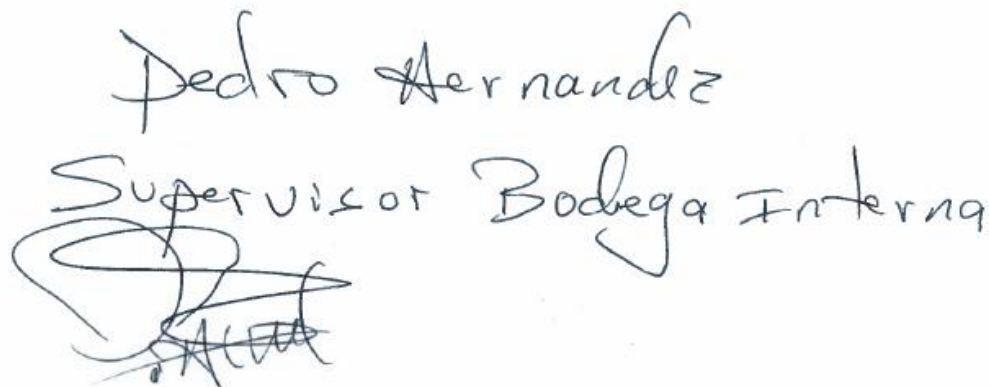 Pedro Hernandez
Supervisor Bodega Interna